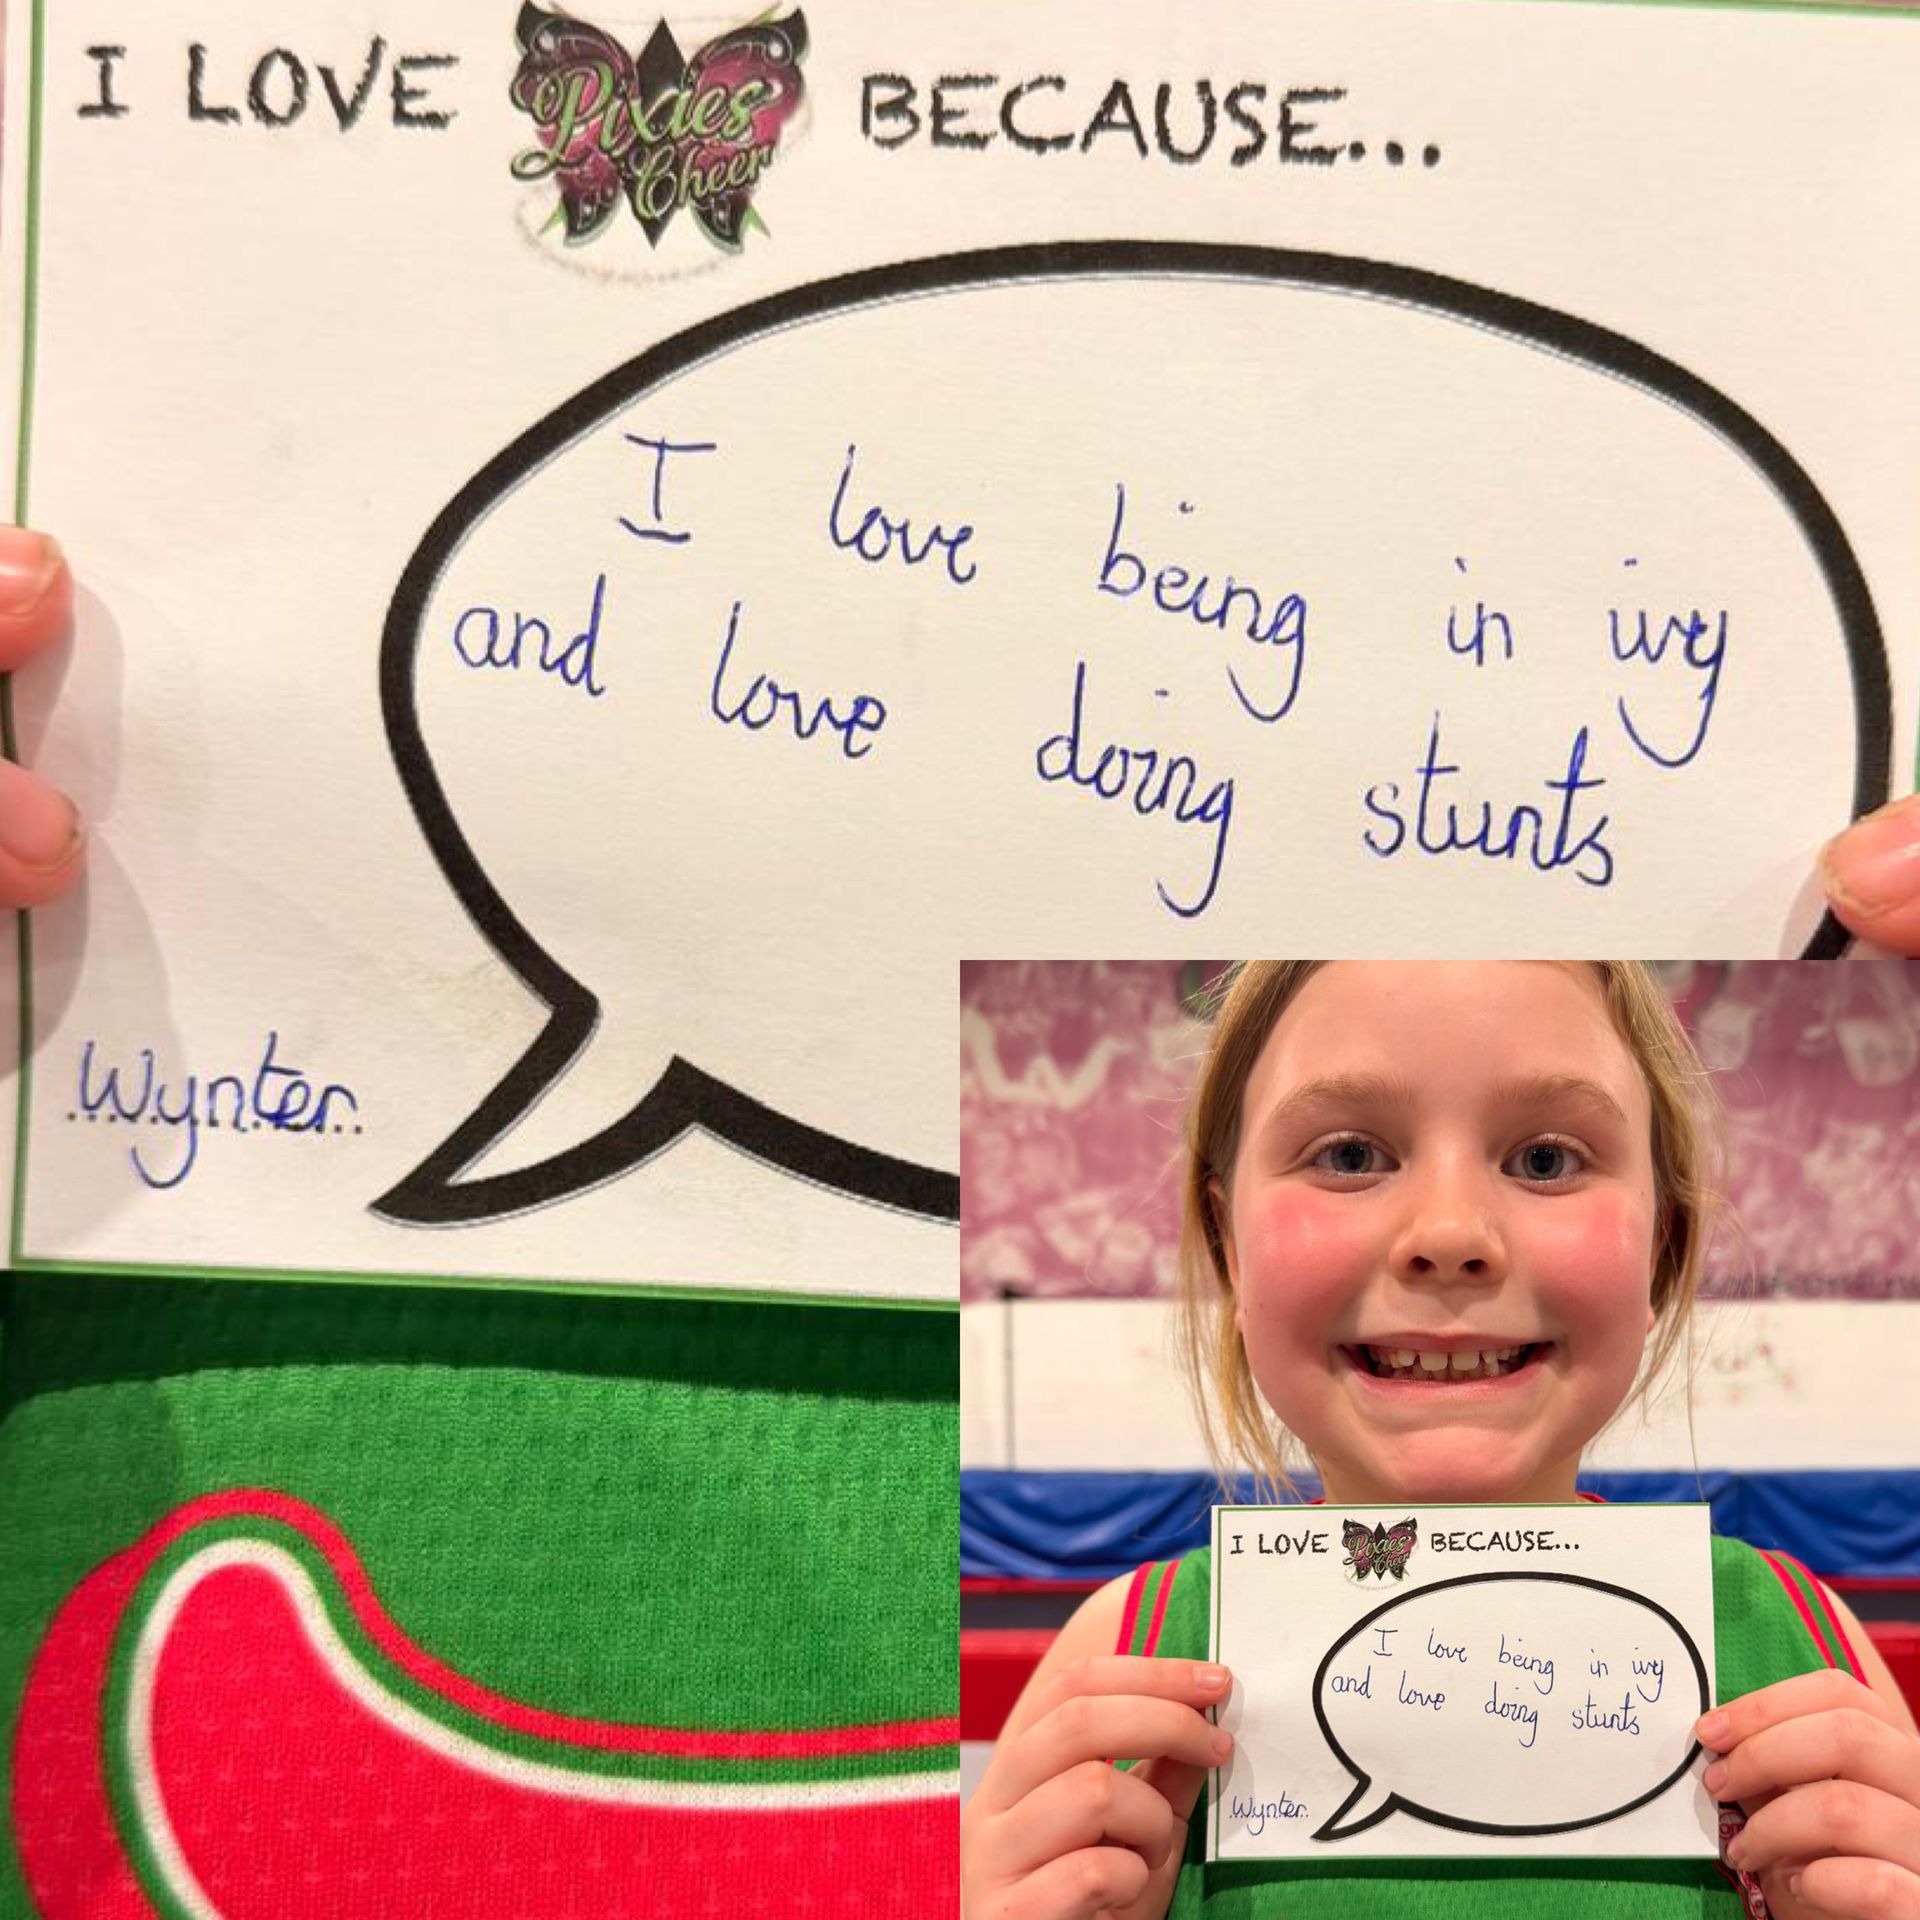 I LOVE Pixies Cheer BECAUSE...
I love being in ivy
and love doing stunts
Wynter
I LOVE Pixies Cheer BECAUSE...
I love being in ivy
and love doing stunts
Wynter